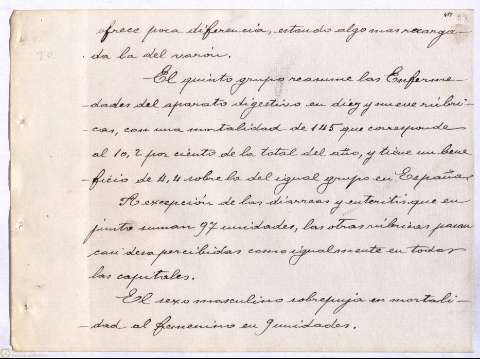 ofrece poca diferencia, estando algo mas recarga-
da la del varón.
El quinto grupo reasume las Enferme-
dades del aparato digestivo en diez y nueve rúbri-
cas, con una mortalidad de 145 que corresponde
al 10,2 por ciento de la total del año, y tiene un bene
ficio de 4,4 sobre la del igual grupo en España.
A excepción de las diarreas y enteritis que en
junto suman 97 unidades, las otras rúbricas pasan
casi desapercibidas como igualmente en todas
las capitales.
El sexo masculino sobrepuja en mortali-
dad al femenino en 9 unidades.